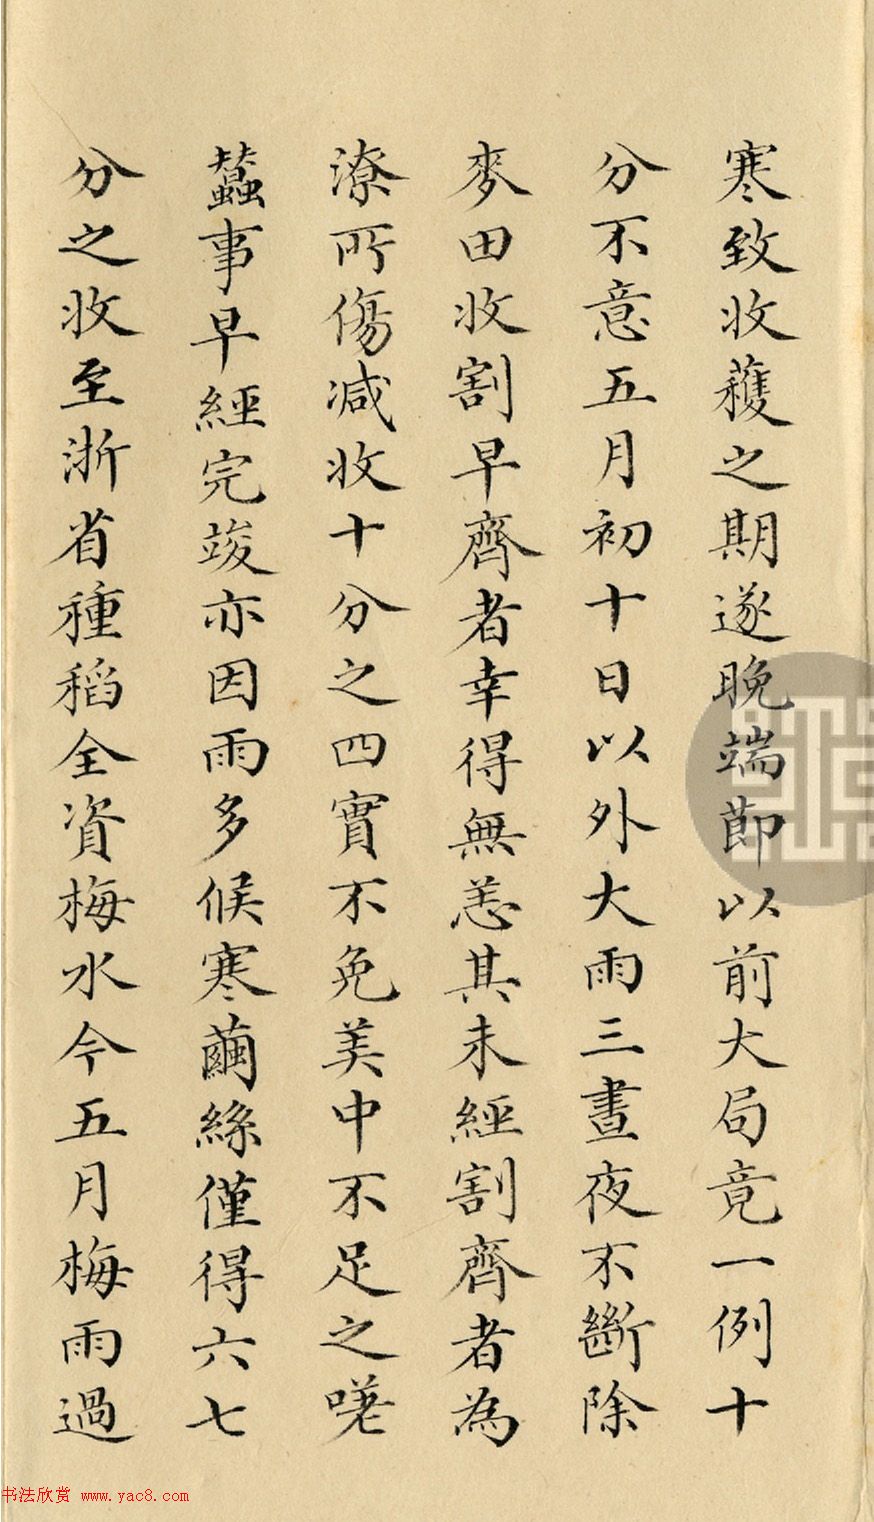 寒致收穫之期遂晚端節以前大局竟一例十
分不意五月初十日以外大雨三晝夜不斷除
麥田收割早齊者幸得無恙其未經割齊者為
潦所傷減收十分之四實不免美中不足之嘆
蠶事早經完竣亦因雨多候寒繭絲僅得六七
分之收至浙省種稻全資梅水今五月梅雨過
书法欣赏 www.yac8.com